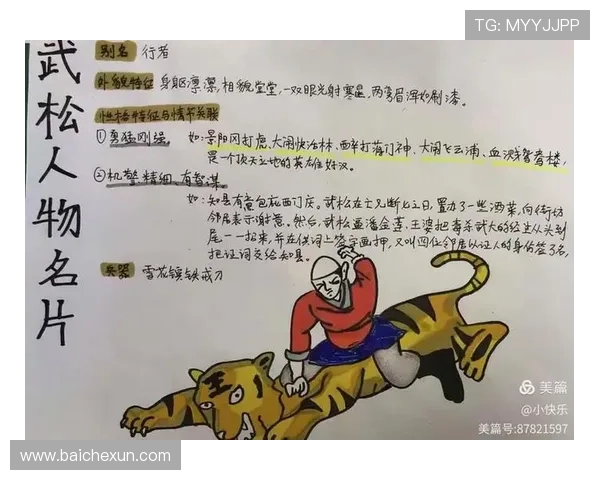 TG: MYYJJPP
武松人物名片
别名 行者
外貌特征 身躯凛凛,相貌堂堂,一双眼光射寒星,两弯眉浑如刷漆。
性格特征与情节关联
①勇猛刚强 如:景阳冈打虎、大闹快活林、醉打蒋门神、大闹飞云浦、血溅鸳鸯楼,
是个顶天立地的英雄好汉。
②机警精细、有智谋
如:知县有意包庇西门庆。武松在士兄断七之日,置办了一些酒菜,向街坊
邻居表示谢意。然后,武松逼潘金莲、王婆把毒杀武大的经过从头到
尾一一招来,并在供词上签字画押,又叫四位邻居以证人的身份签了名,
把证词交给知县。
兵器 雪花镔铁戒刀
王
美篇
@小快乐
美篇号:87821597
www.baichexun.com